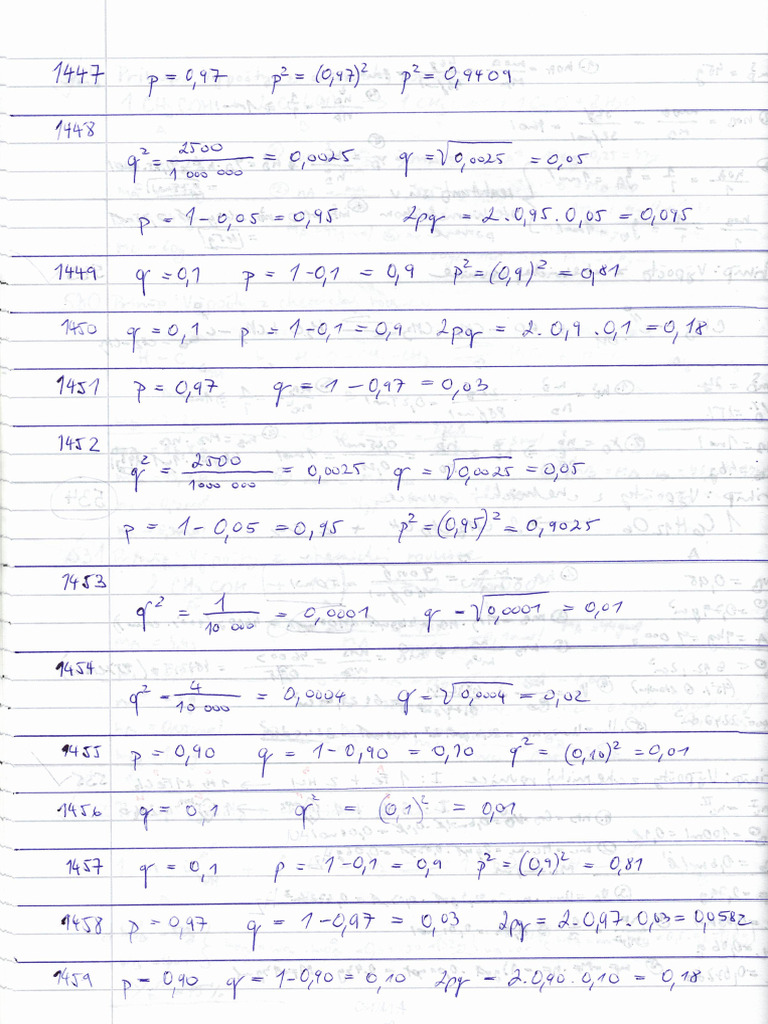 1447 p = 0,97 p² = (0,97)² p² = 0,9409
1448
q² = 2500/1 000 000 = 0,0025 q = √0,0025 = 0,05
p = 1 - 0,05 = 0,95 2pq = 2 . 0,95 . 0,05 = 0,095
1449 q = 0,1 p = 1 - 0,1 = 0,9 p² = (0,9)² = 0,81
1450 q = 0,1 p = 1 - 0,1 = 0,9 2pq = 2 . 0,9 . 0,1 = 0,18
1451 p = 0,97 q = 1 - 0,97 = 0,03
1452
q² = 2500/1000 000 = 0,0025 q = √0,0025 = 0,05
p = 1 - 0,05 = 0,95 p² = (0,95)² = 0,9025
1453
q² = 1/10 000 = 0,0001 q = √0,0001 = 0,01
1454
q² = 4/10 000 = 0,0004 q = √0,0004 = 0,02
1455 p = 0,90 q = 1 - 0,90 = 0,10 q² = (0,10)² = 0,01
1456 q = 0,1 q² = (0,1)² = 0,01
1457 q = 0,1 p = 1 - 0,1 = 0,9 p² = (0,9)² = 0,81
1458 p = 0,97 q = 1 - 0,97 = 0,03 2pq = 2 . 0,97 . 0,03 = 0,0582
1459 p = 0,90 q = 1 - 0,90 = 0,10 2pq = 2 . 0,90 . 0,10 = 0,18